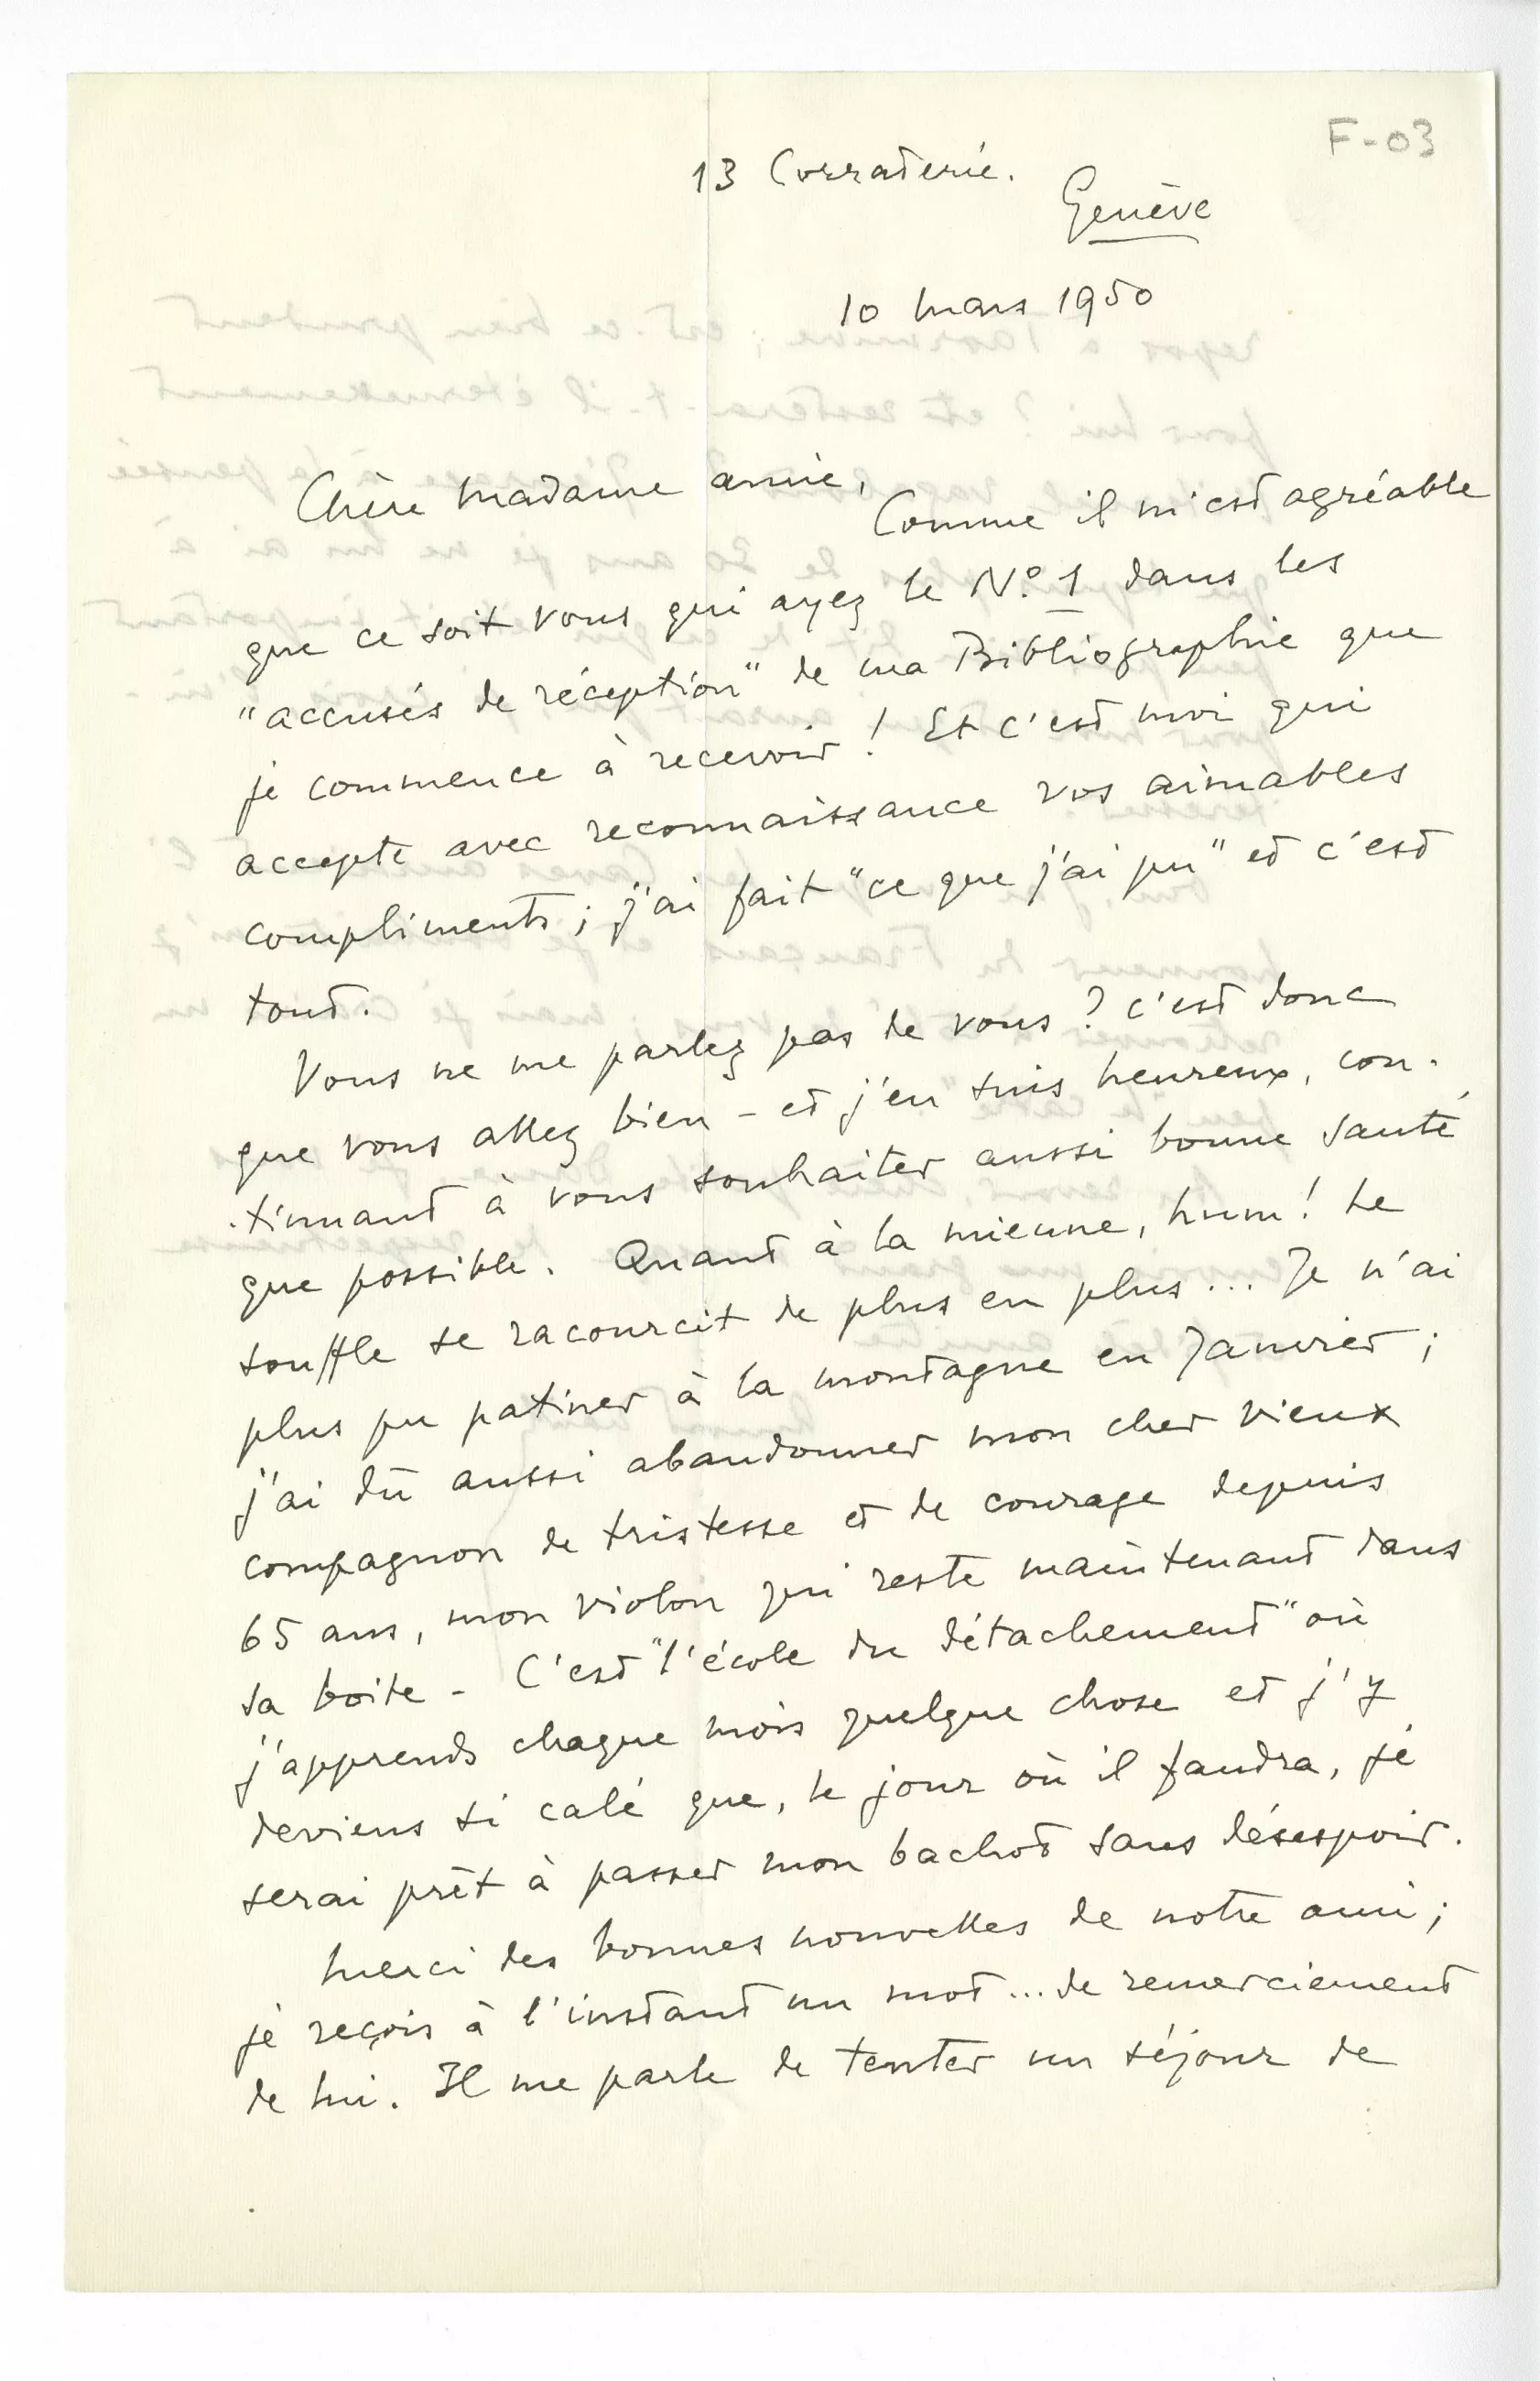 F-03
13 Corraterie.
Genève
10 mars 1950
Chère Madame amie,
Comme il m'est agréable
que ce soit vous qui ayez le No. 1 dans les
"accusés de réception" de ma Bibliographie que
je commence à recevoir ! Et c'est moi qui
accepte avec reconnaissance vos aimables
compliments ; j'ai fait "ce que j'ai pu" et c'est
tout.
Vous ne me parlez pas de vous ? c'est donc
que vous allez bien - et j'en suis heureux, con-
-tinuant à vous souhaiter aussi bonne santé
que possible. Quant à la mienne, hum ! Le
souffle se racourcit de plus en plus ... Je n'ai
plus pu patiner à la montagne en Janvier ;
j'ai dû aussi abandonner mon cher vieux
compagnon de tristesse et de courage depuis
65 ans, mon violon qui reste maintenant dans
sa boite - C'est "l'école du détachement" où
j'apprends chaque mois quelque chose et j'y
deviens si calé que, le jour où il faudra, je
serai prêt à passer mon bachot sans désespoir.
Merci des bonnes nouvelles de notre ami ;
je reçois à l'instant un mot ... de remerciement
de lui. Il me parle de tenter un séjour de